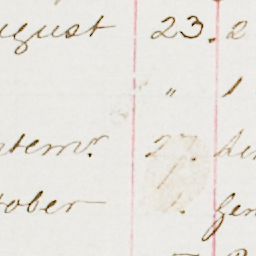 ugust 23. 2
" 1
ptemr. 27.
tober 1. Gen